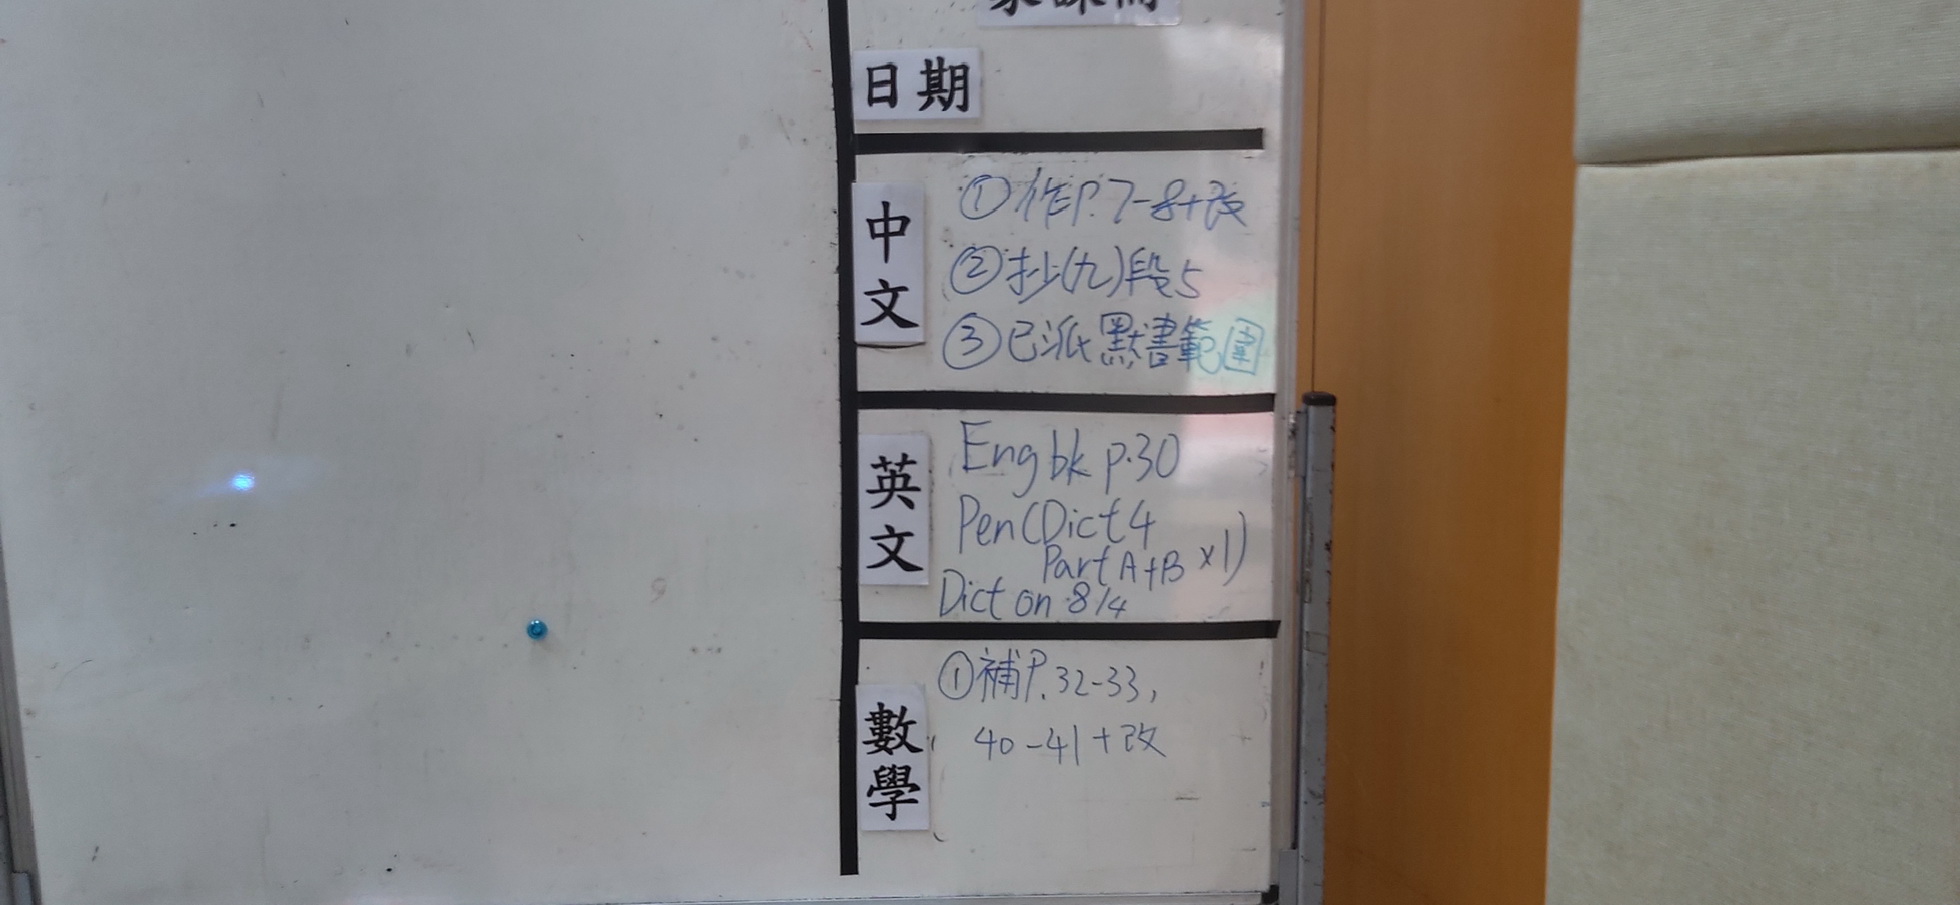 日期
中文
①作P.7-8+改
②抄(九)段5
③已派默書範圍
英文
Eng bk p.30
Pen(Dict 4
Part A+B ×1)
Dict on 8/4
數學
①補P.32-33,
40-41+改